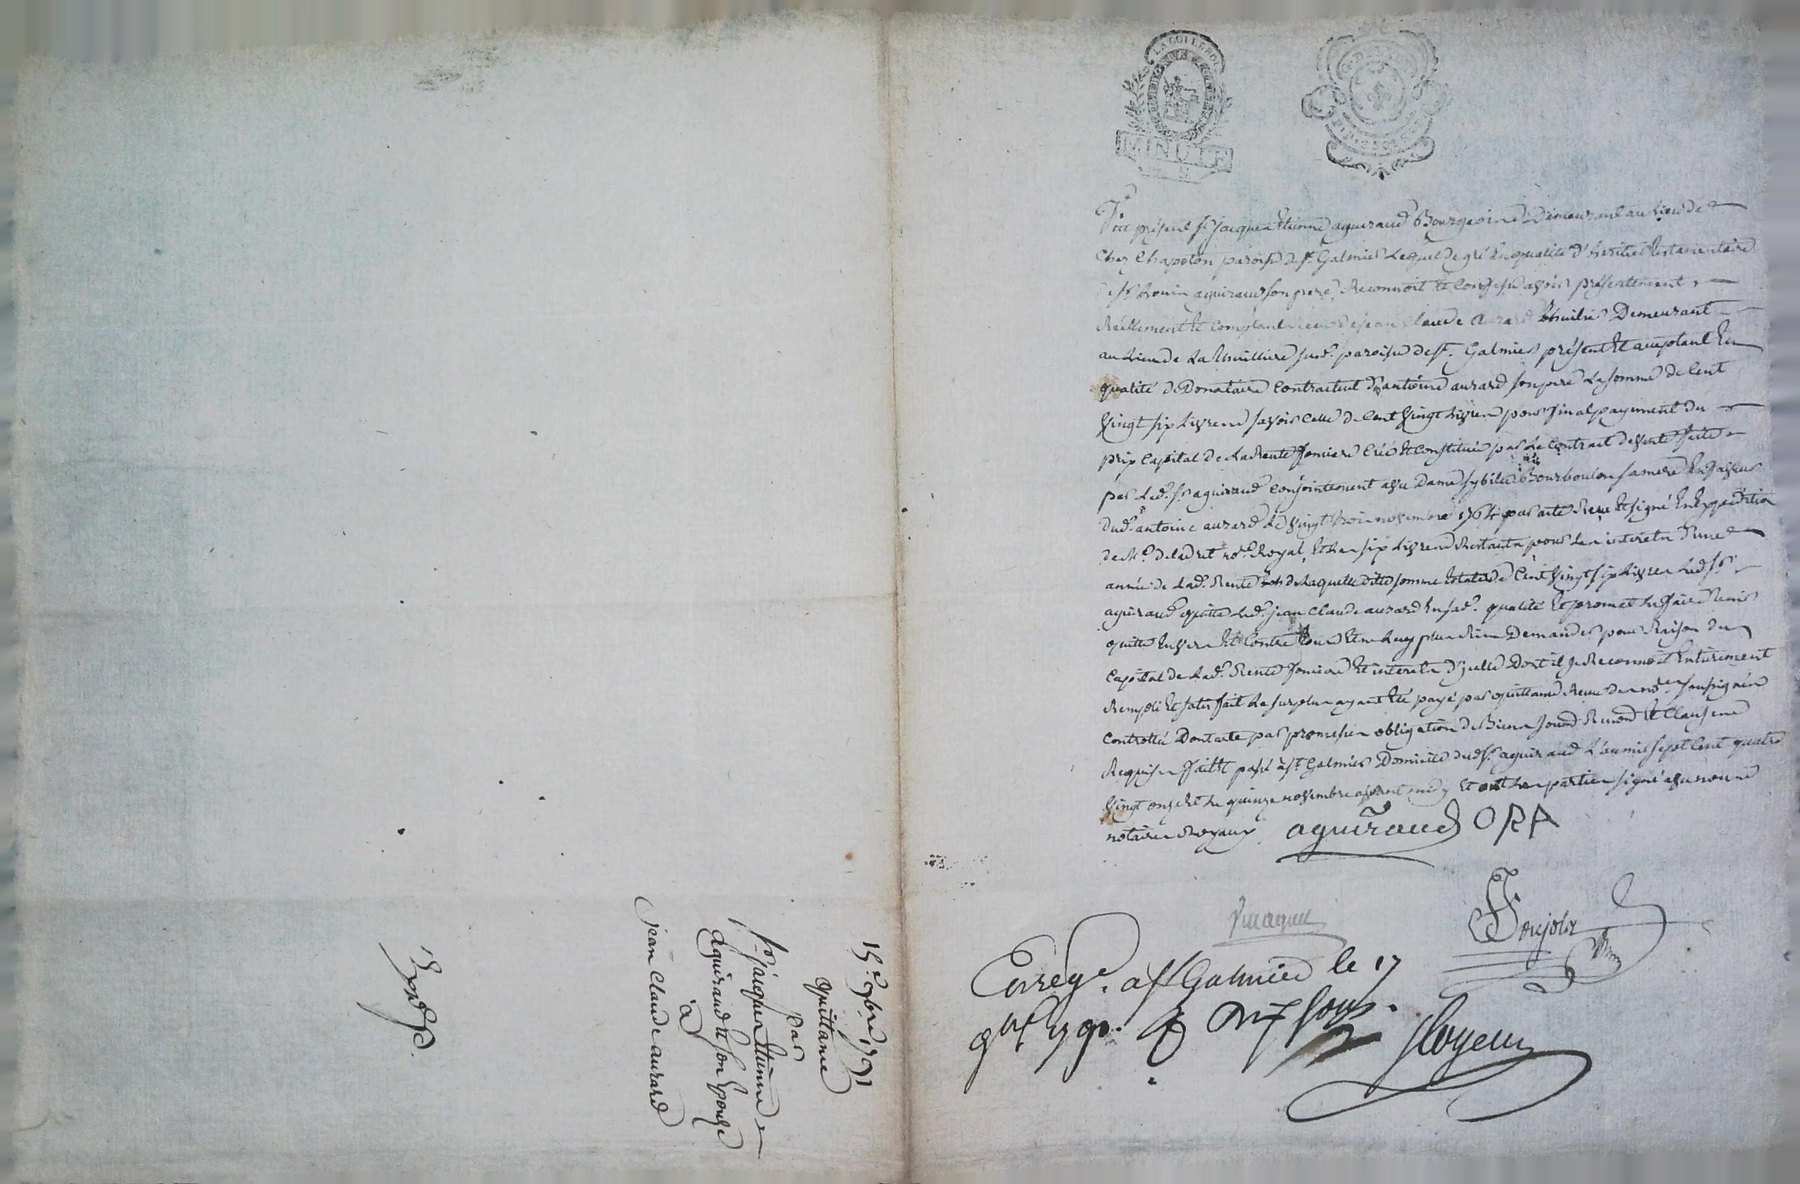 LA LOI LE ROI
MINUTE
Fut présent Sr. jacques Etienne aguiraud Bourgeois Demeurant au lieu de
chez Chapolon paroisse de St. Galmier Lequel de gré En qualité d'héritier testamentaire
de Sr. aguiraud son pere, Reconnoit Et Confesse avoir présentement
Réellement Et Comptant Reçu de jean Claude aurard Demeurant
au Lieu de La susd. paroisse de St. Galmier présent Et acceptant En
qualité de Donataire Contractuel d'antoine aurard son pere La somme de Cent
Vingt six Livres savoir Celle de Cent Vingt Livres pour final payement du
prix Capital de La Rente fonciere Créé Et Constituée par Le Contract de vente faite
par Led. Sr. aguiraud Conjointement avec Dame sybile Bourboulon sa mere En faveur
dud. antoine aurard Le Vingt trois novembre 1764 par acte Reçu Et signé En Expédition
de Me. deladret no.re Royal, Et Les six Livres Restants pour Les interets d'une
année de Lad. Rente de Laquelle ditte somme totale de Cent Vingt six Livres Led. Sr.
aguiraud quitte Led. jean Claude aurard En sad. qualité Et promet Le faire tenir
quitte Envers Et Contre tous Et ne Luy plus Rien Demander pour Raison du
Capital de Lad. Rente fonciere Et interets d'jcelle Dont il se Reconnoit Entierement
Rempli Et satisfait Le surplus ayant Eté payé par quittance Reçue des nres. soussignés
Controllée Dont acte par promesses obligation de Biens soumis. Renond. Et Clauses
Requises fait Et passé à St. Galmier Domicile dud. Sr. aguiraud L'an mil sept Cent quatre
Vingt onze Et Le quinze novembre avant midy Et ont Les parties signé avec nous
notaires Royaux aguiraud ORA
Enreg. a St Galmier le 17
9bre 1791. R sous.
15e. 9bre 1791
quittance
par
Sr. jacques Etienne
aguiraud Et son Epouse
à
jean Claude aurard